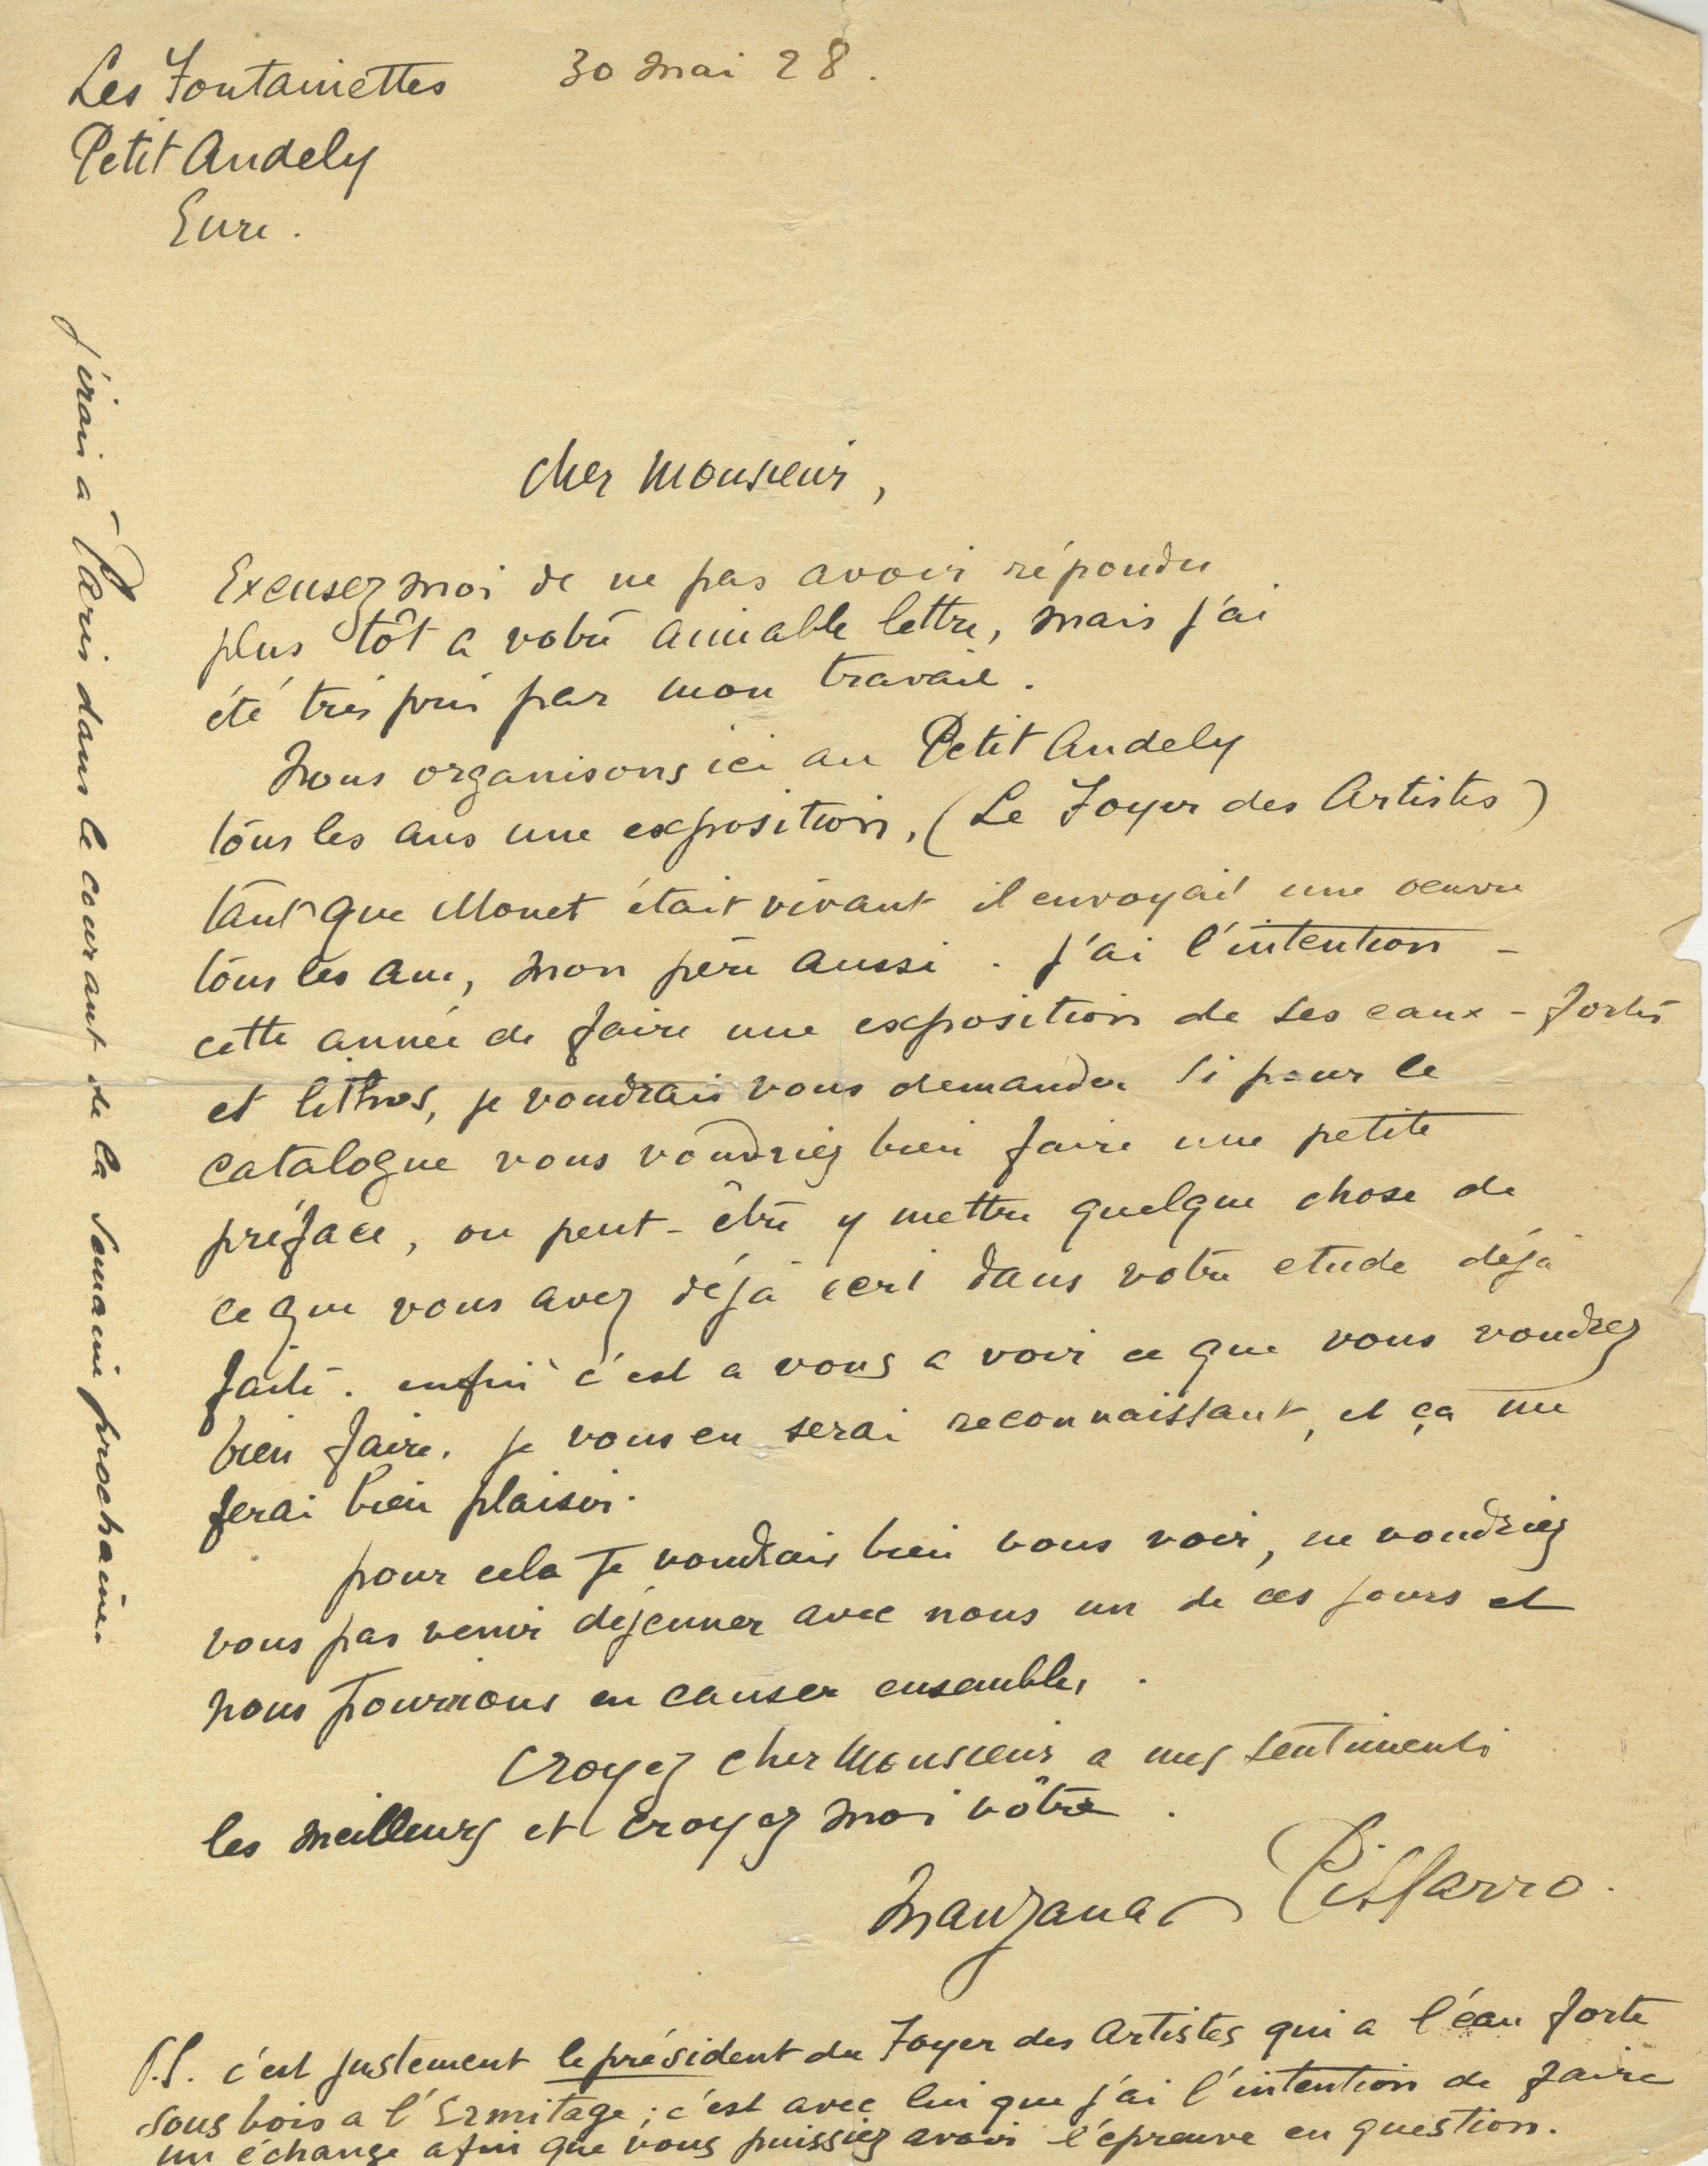 Les Fontainettes
30 mai 28.
Petit Andely
Eure.
cher monsieur,
Excusez moi de ne pas avoir répondu
plus tôt a votre aimable lettre, mais j'ai
été très pris par mon travail.
Nous organisons ici au Petit Andely
tous les ans une exposition, (Le Foyer des Artistes)
tant que Monet était vivant il envoyait une oeuvre
tous les ans, mon père aussi. j'ai l'intention -
cette année de faire une exposition de ses eaux-fortes
et lithos, je voudrais vous demander si pour le
catalogue vous voudriez bien faire une petite
préface, ou peut-être y mettre quelque chose de
ce que vous avez déjà écri dans votre etude déjà
faite. enfin c'est a vous a voir ce que vous voudrez
bien faire. je vous en serai reconnaissant, et ça me
ferai bien plaisir.
pour cela je voudrais bien vous voir, ne voudriez
vous pas venir déjeunner avec nous un de ces jours et
nous pourrions en causer ensembles.
Croyez cher Monsieur a mes sentiments
les meilleurs et croyez moi vôtre.
Manzana Pissarro.
P.S. c'est justement le président du Foyer des Artistes qui a l'éau forte
sous bois a l'Ermitage; c'est avec lui que j'ai l'intention de faire
un échange afin que vous puissiez avoir l'épreuve en question.
j'irai à Paris dans le courant de la semaine prochaine.